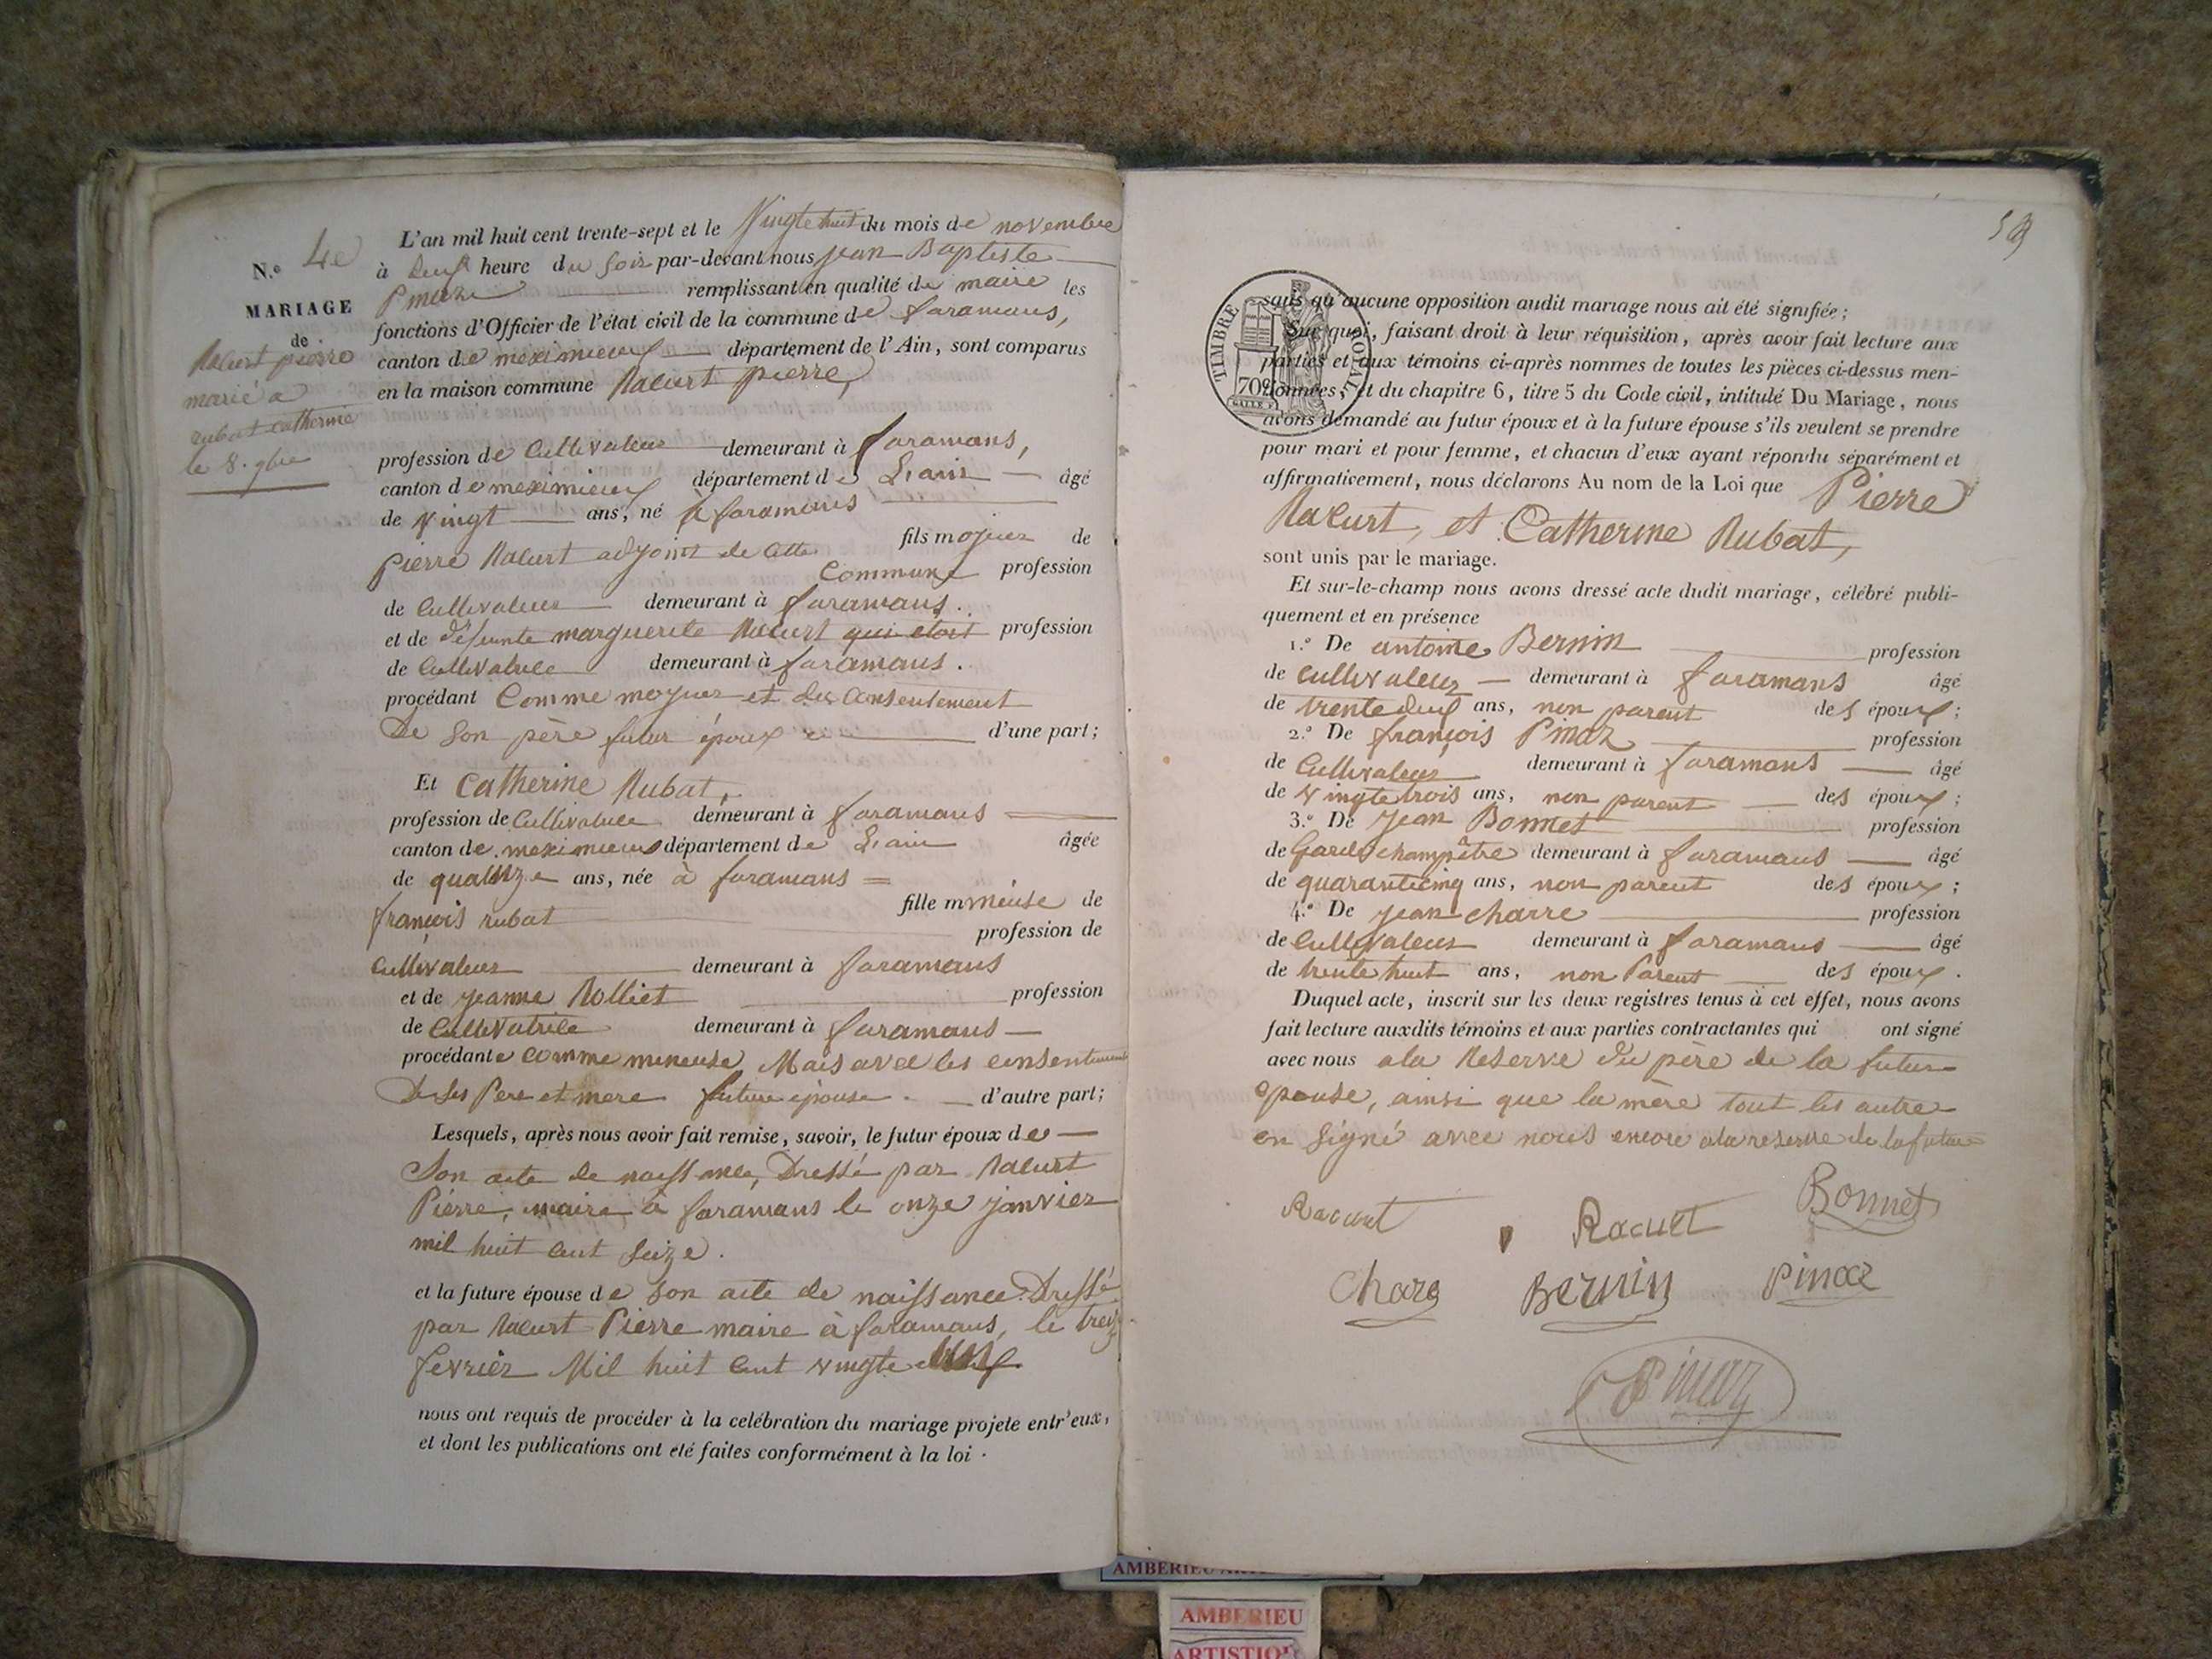 N.º 4e
MARIAGE
de
Racurt pierre
marié a
rubat catherine
le 8. 9bre
L'an mil huit cent trente-sept et le Vingte huit du mois de novembre
à deux heure du soir par-devant nous jean Baptiste
Pinaz remplissant en qualité de maire les
fonctions d'Officier de l'état civil de la commune de faramans,
canton de meximieux département de l'Ain, sont comparus
en la maison commune Racurt pierre,
profession de Cultivateur demeurant à faramans,
canton de meximieux département de L'ain âgé
de Vingt ans, né à faramans
fils majeur de
Pierre Racurt adjoint de cette
Commune profession
de Cultivateur demeurant à faramans.
et de défunte marguerite Racurt qui etoit profession
de Cultivatrice demeurant à faramans.
procédant Comme majeur et du Consentement
De Son père futur époux d'une part;
Et Catherine Rubat,
profession de Cultivatrice demeurant à faramans
canton de meximieux département de L'ain âgée
de quatorze ans, née à faramans
fille mineure de
françois rubat
profession de
Cultivateur demeurant à faramans
et de jeanne Rolliet profession
de Cultivatrice demeurant à faramans
procédante Comme mineuse, Mais avec les consentement
De Ses Pere et mere future épouse d'autre part;
Lesquels, après nous avoir fait remise, savoir, le futur époux de
Son acte de naissance, Dressé par Racurt
Pierre, maire à faramans le onze janvier
mil huit cent seize.
et la future épouse de son acte de naissance Dressé
par Racurt Pierre maire à faramans, le treize
fevrier Mil huit cent vingte
nous ont requis de procéder à la celébration du mariage projeté entr'eux,
et dont les publications ont été faites conformément à la loi.
59
TIMBRE ROYAL
70c
sans qu'aucune opposition audit mariage nous ait été signifiée;
Sur quoi, faisant droit à leur réquisition, après avoir fait lecture aux
parties et aux témoins ci-après nommes de toutes les pièces ci-dessus men-
tionnées, et du chapitre 6, titre 5 du Code civil, intitulé Du Mariage, nous
avons demandé au futur époux et à la future épouse s'ils veulent se prendre
pour mari et pour femme, et chacun d'eux ayant répondu séparément et
affirmativement, nous déclarons Au nom de la Loi que Pierre
Racurt, et Catherine Rubat,
sont unis par le mariage.
Et sur-le-champ nous avons dressé acte dudit mariage, célébré publi-
quement et en présence
1.º De antoine Bernin profession
de Cultivateur demeurant à faramans âgé
de trente deux ans, non parent des époux;
2.º De françois Pinaz profession
de Cultivateur demeurant à faramans âgé
de vingte trois ans, non parent des époux;
3.º De jean Bonnet profession
de Garde champêtre demeurant à faramans âgé
de quarantecinq ans, non parent des époux;
4.º De jean charre profession
de Cultivateur demeurant à faramans âgé
de trente huit ans, non Parent des époux.
Duquel acte, inscrit sur les deux registres tenus à cet effet, nous avons
fait lecture auxdits témoins et aux parties contractantes qui ont signé
avec nous a la Reserve du père de la future
epouse, ainsi que la mère tout les autre
on signé avec nous encore a la reserve de la future
Racurt Racurt Bonnet
Chare Bernin Pinaz
Pinaz
AMBERIEU
AMBERIEU
ARTISTIQ